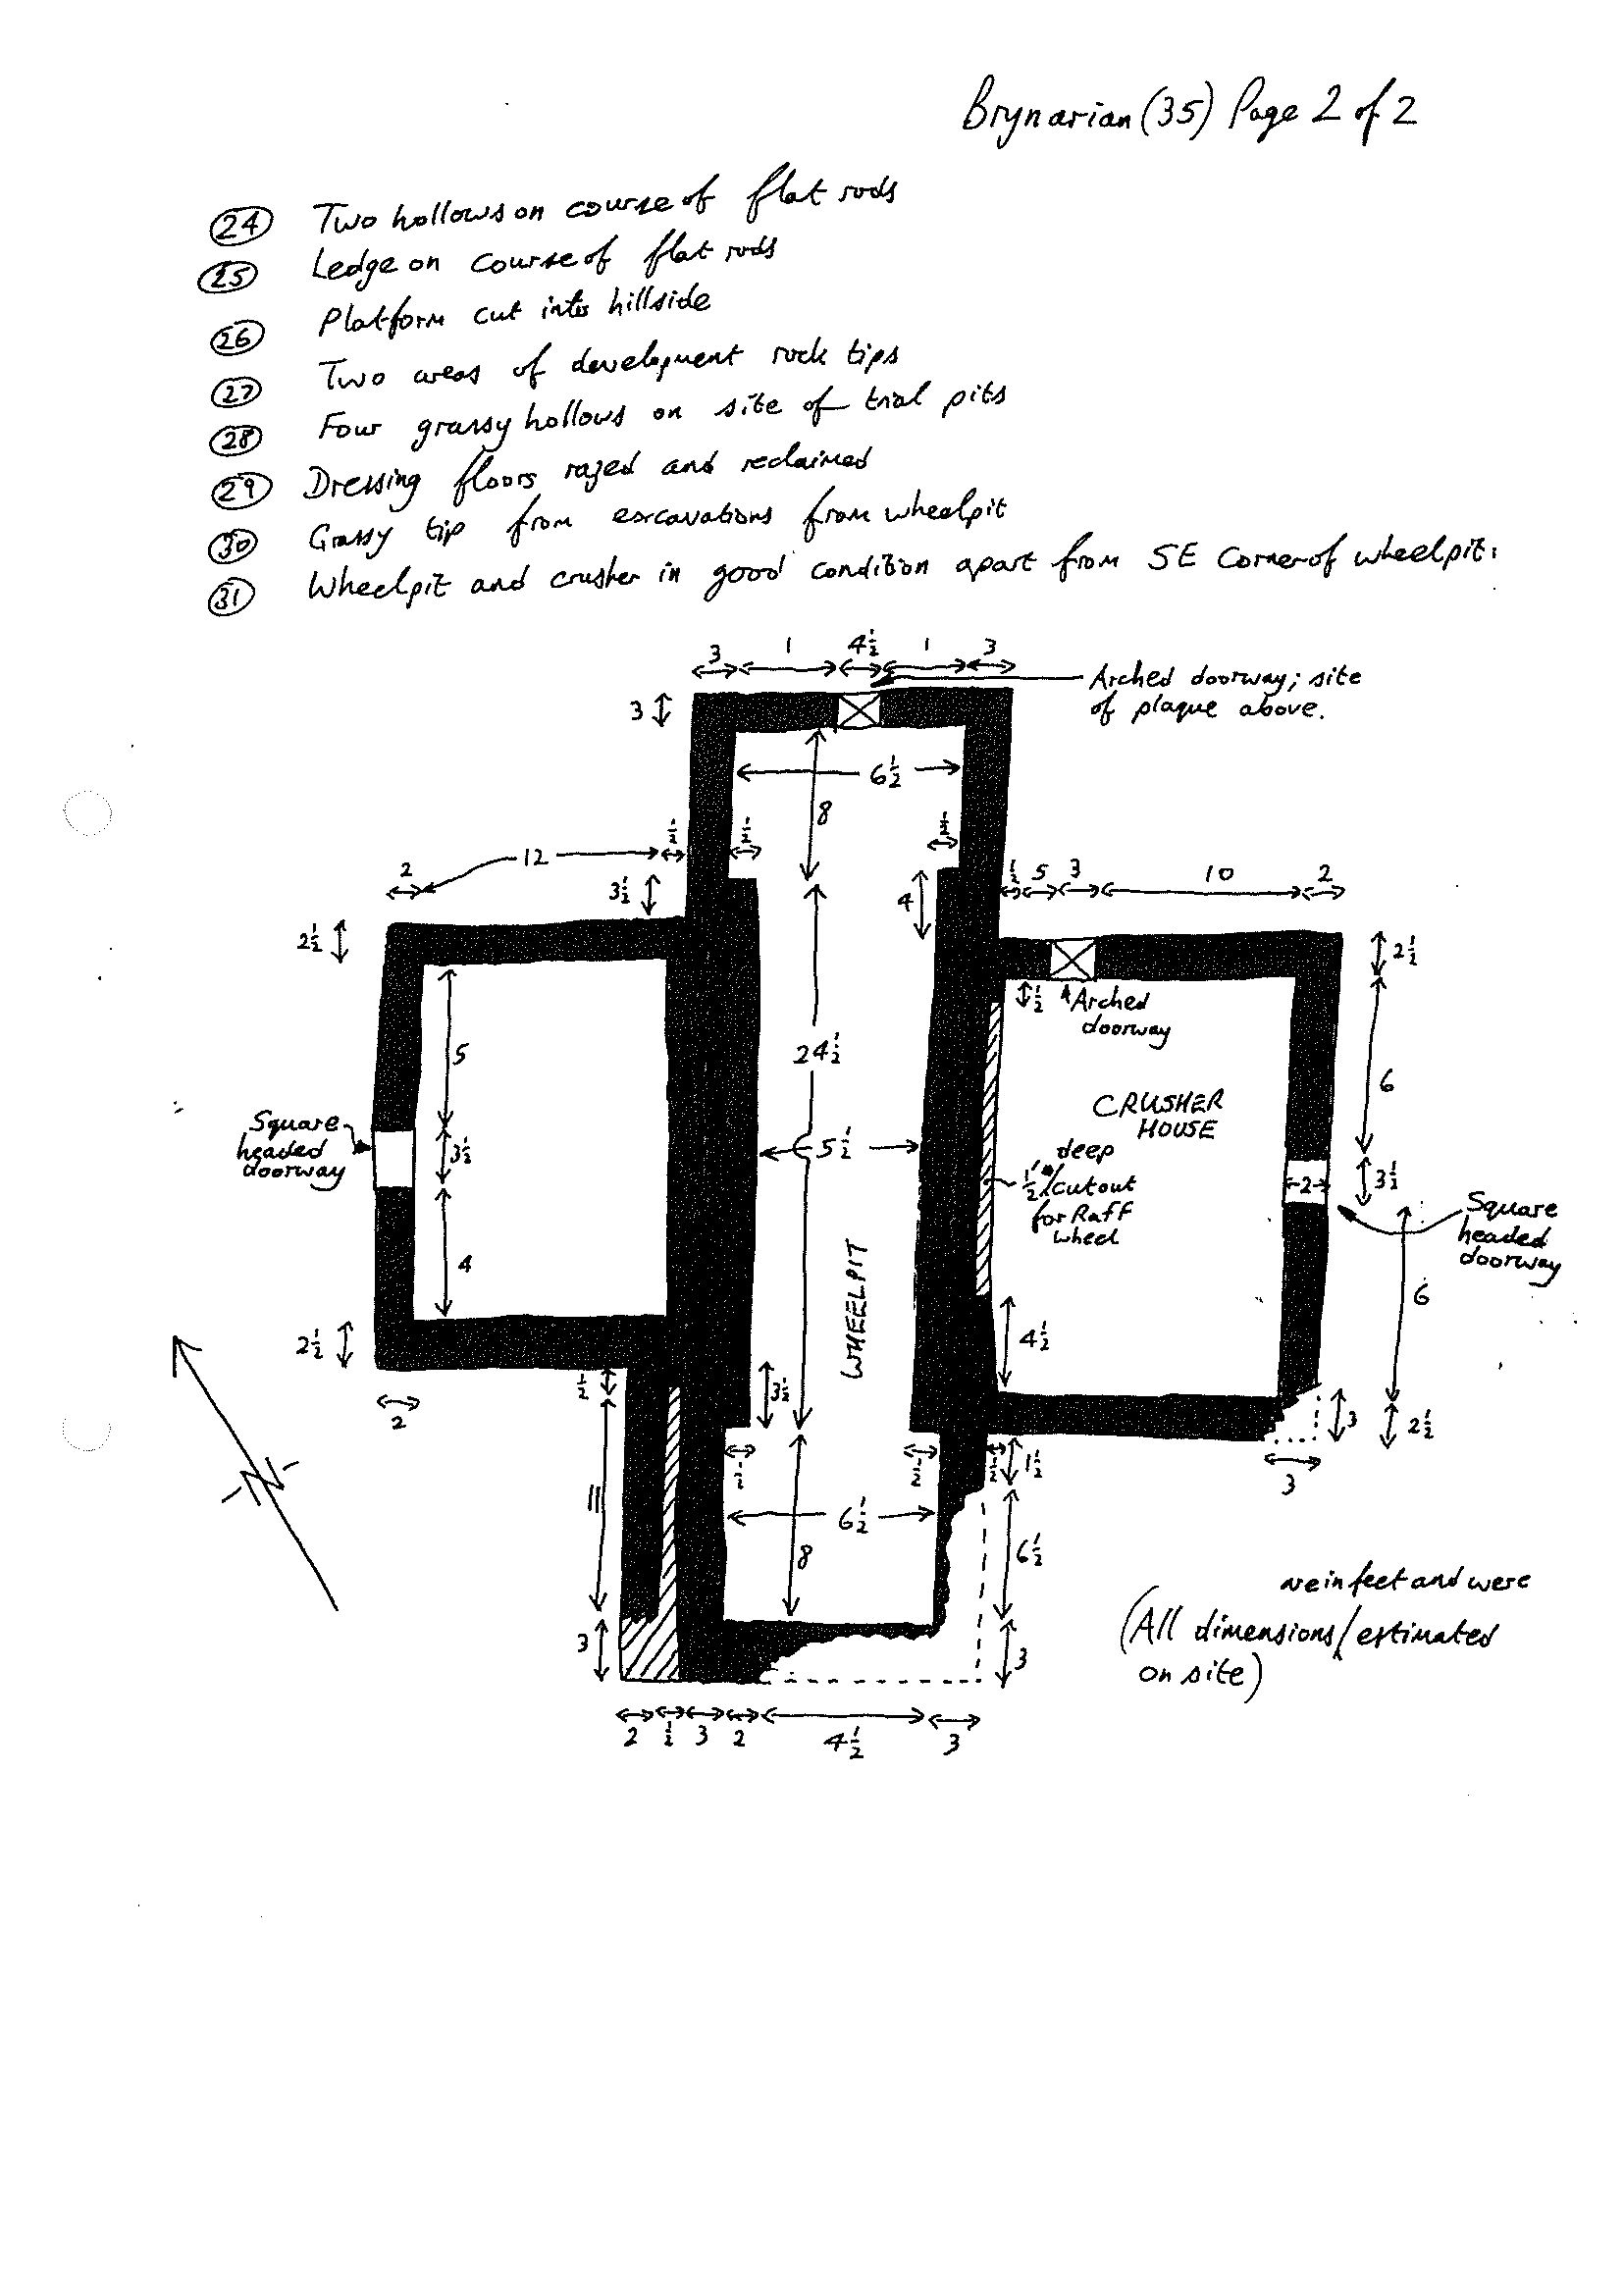 Brynarian (35) Page 2 of 2
24 Two hollows on course of flat rods
25 Ledge on course of flat rods
26 Platform cut into hillside
27 Two areas of development rock tips
28 Four grassy hollows on site of trial pits
29 Dressing floors razed and reclaimed
30 Grassy tip from excavations from wheelpit
31 Wheelpit and crusher in good condition apart from SE Corner of wheelpit.
3 1 4½ 1 3
Arched doorway; site
of plaque above.
3
6½
8
½ ½ ½
2 12
3½
4
½ 5 3 10 2
2½
2½
½
Arched
doorway
5
24½
6
CRUSHER
HOUSE
Square
headed
doorway
3½
5½
deep
½" cutout
for Raff
wheel
2
3½
Square
headed
doorway
4
WHEELPIT
6
2½
4½
½
3½
2
3
2½
½ ½ ½ 1½
3
11
6½
8
6½
are in feet and were
(All dimensions / estimated
on site)
3
3
2 ½ 3 2 4½ 3
N